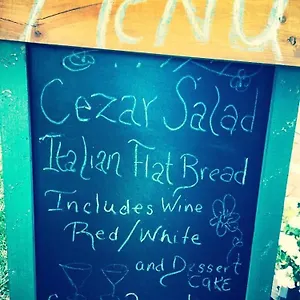 MENU
Cezar Salad
Italian Flat Bread
Includes Wine
Red/White
and Dessert
CAKE